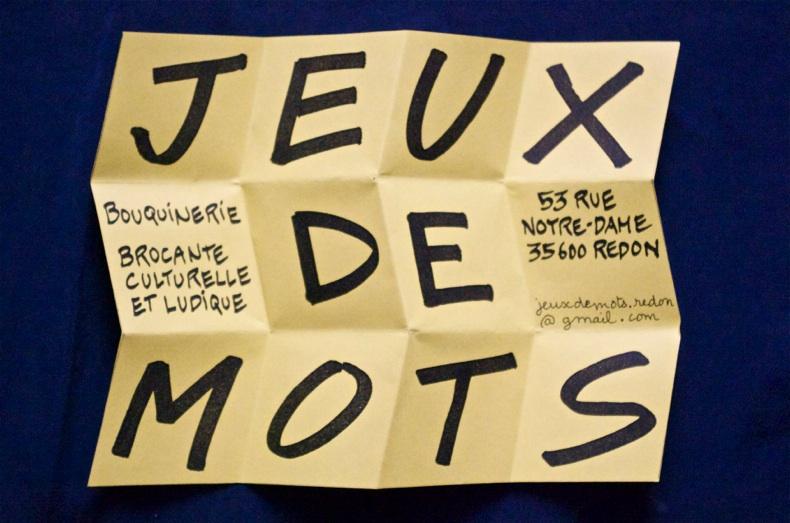 JEUX
BOUQUINERIE
BROCANTE
CULTURELLE
ET LUDIQUE
DE
53 RUE
NOTRE-DAME
35600 REDON
jeuxdemots.redon
@ gmail.com
MOTS